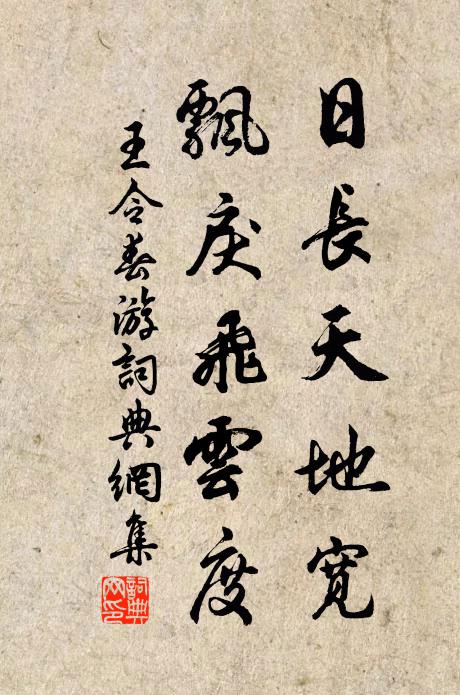 日長天地寬
飄戾飛雲度
王令春游詞典網集
詞典網印